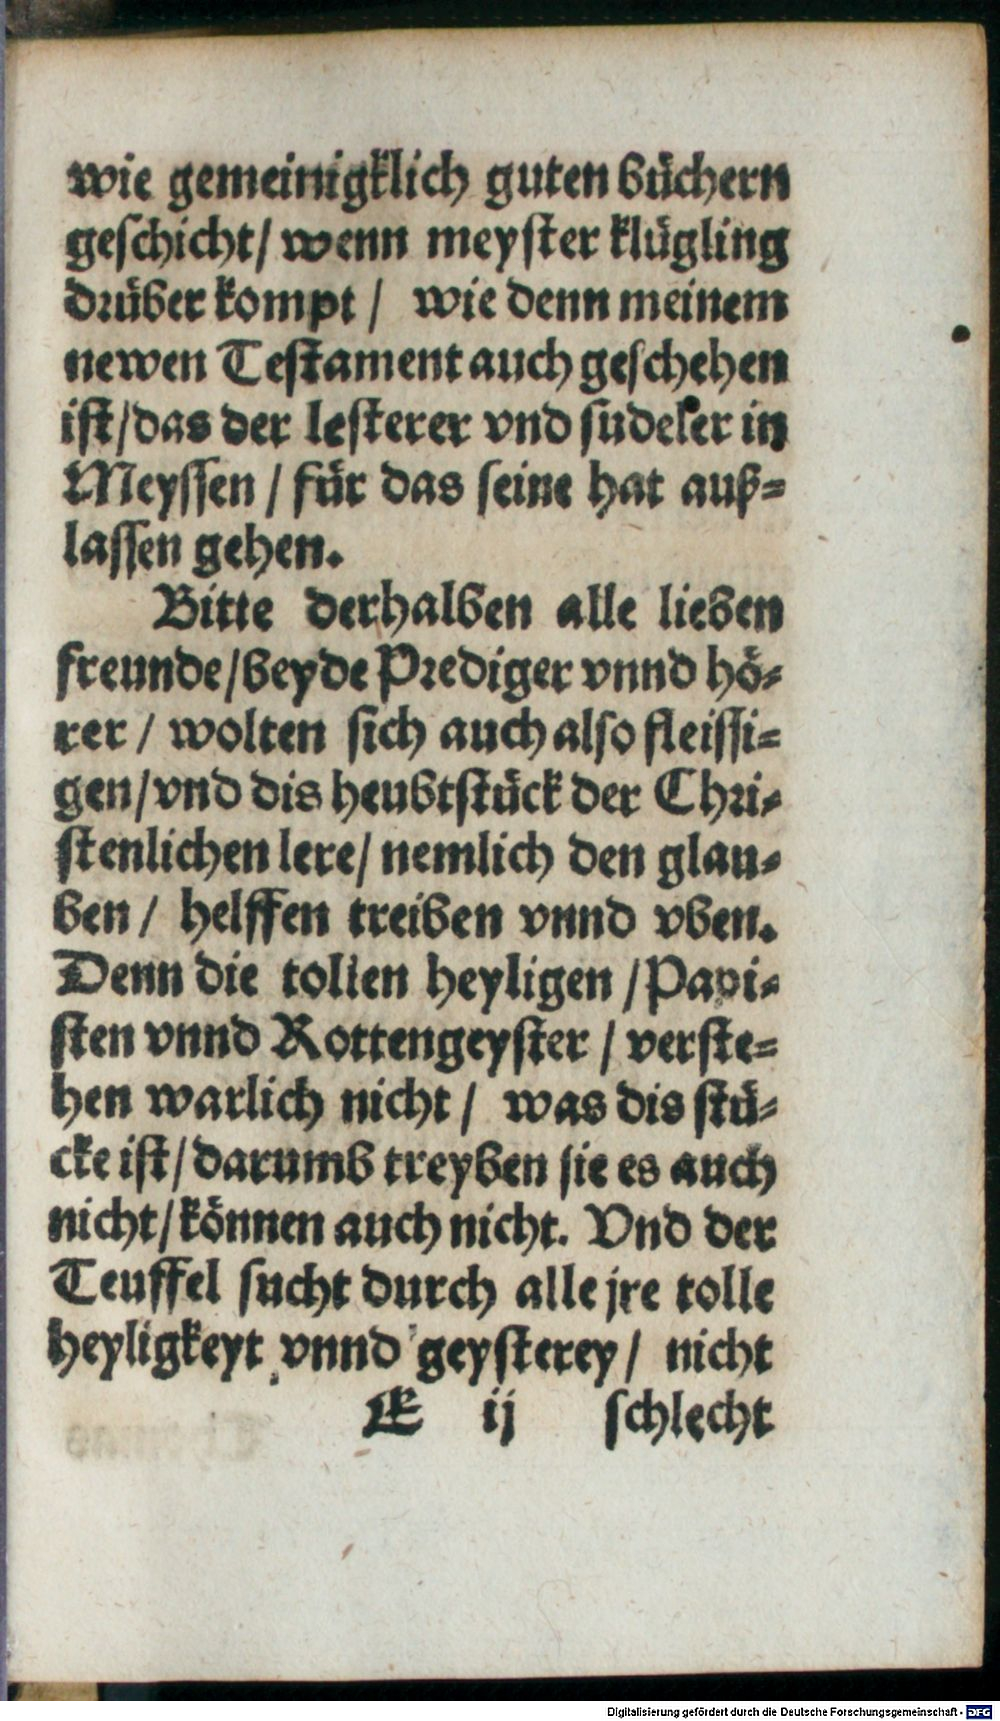 wie gemeinigklich guten büchern
geschicht/ wenn meyster klügling
drüber kompt / wie denn meinem
newen Testament auch geschehen
ist/das der lesterer vnd sudeler in
Meyssen / für das seine hat auß=
lassen gehen.
Bitte derhalben alle lieben
freunde/beyde Prediger vnnd hö=
rer / wolten sich auch also fleissi=
gen/vnd dis heubtstück der Chri=
stenlichen lere/ nemlich den glau=
ben / helffen treiben vnnd vben.
Denn die tollen heyligen /Papi=
sten vnnd Rottengeyster / verste=
hen warlich nicht / was dis stü=
cke ist/darumb treyben sie es auch
nicht/können auch nicht. Vnd der
Teuffel sucht durch alle jre tolle
heyligkeyt vnnd geysterey / nicht
E ij schlecht
Digitalisierung gefördert durch die Deutsche Forschungsgemeinschaft - DFG